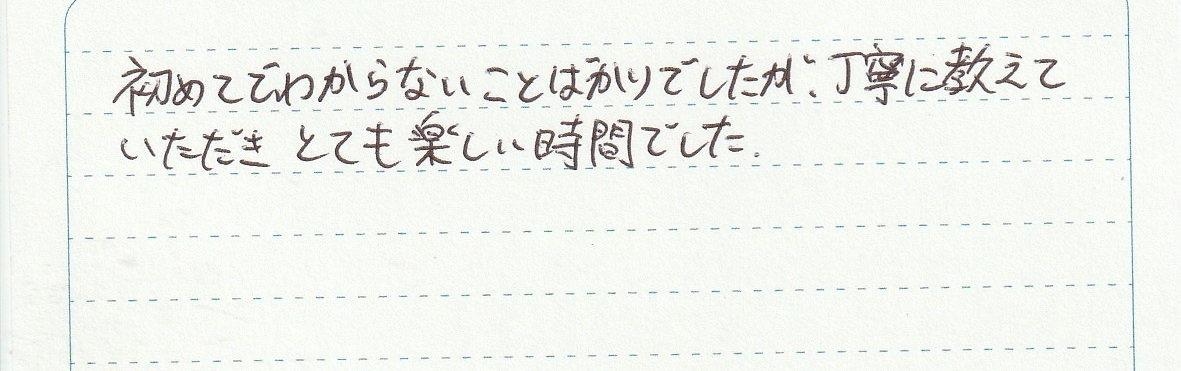 初めてでわからないことばかりでしたが、丁寧に教えて
いただき とても楽しい時間でした.